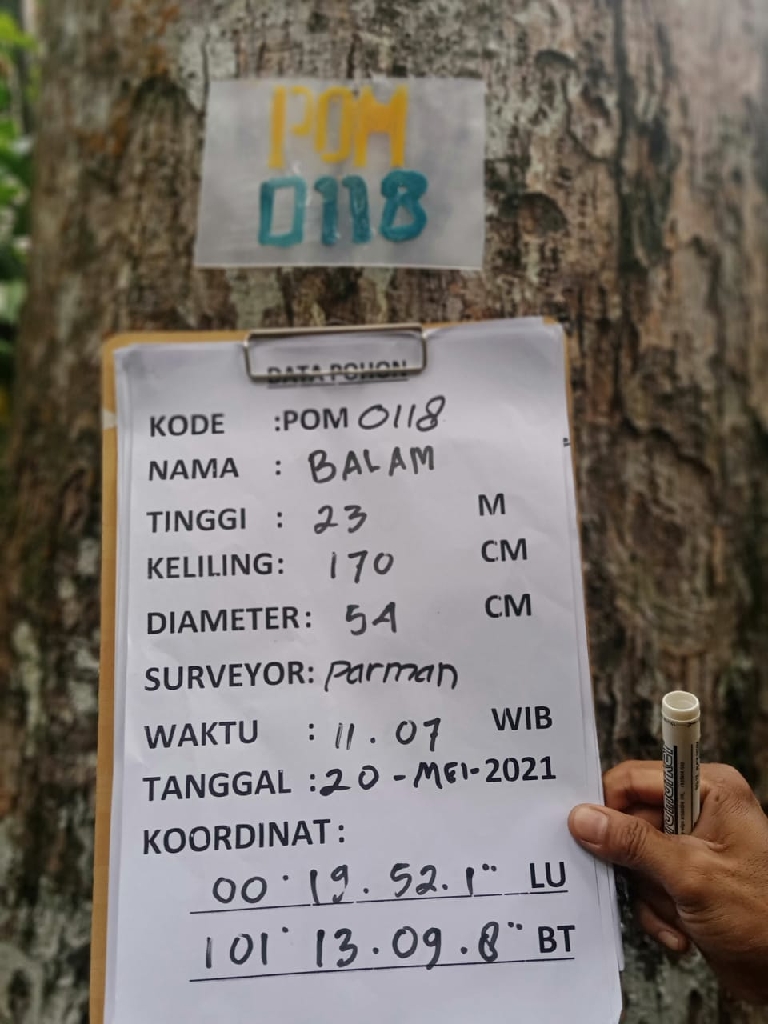 POM
0118
DATA POHON
KODE :POM 0118
NAMA : BALAM
TINGGI : 23 M
KELILING: 170 CM
DIAMETER: 54 CM
SURVEYOR: Parman
WAKTU : 11.07 WIB
TANGGAL :20-MEI-2021
KOORDINAT:
00° 19. 52.1" LU
101° 13.09.8" BT